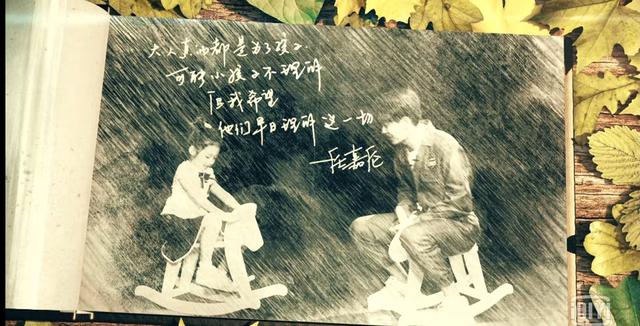 大人真的都是为了孩子
可能小孩子不理解
但我希望
他们早日理解这一切
嘉